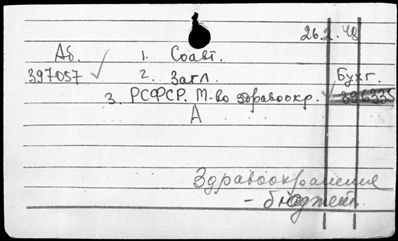 26.2.48
Аб. 1. Соавт.
397057 2. Загл. Бухг.
3. РСФСР. М-во здравоохр. 396335
А
Здравоохранение
- бюджет